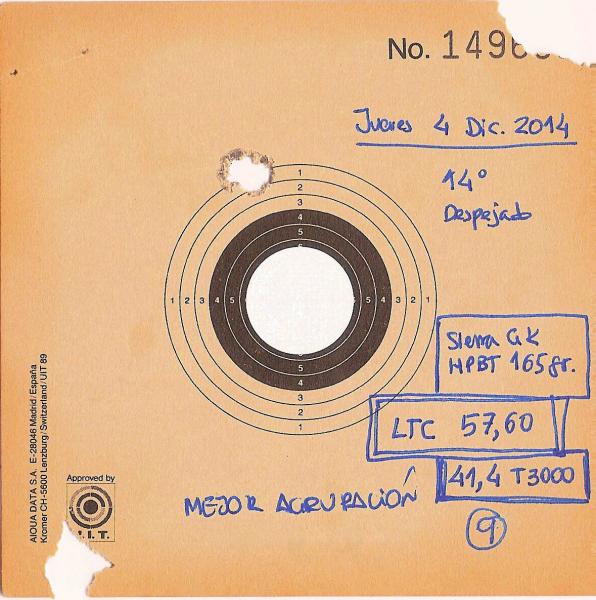 No. 1496
Jueves 4 Dic. 2014
14°
Despejado
1
2
3
4
5
1 2 3 4 5 5 4 3 2 1
5
4
3
2
1
Sierra GK
HPBT 165gr.
LTC 57,60
41,4 T3000
MEJOR AGRUPACIÓN
9
AIOUA DATA S.A. E-28046 Madrid/España
Kromer CH-5600 Lenzburg/Switzerland/UIT 89
Approved by
.I.T.